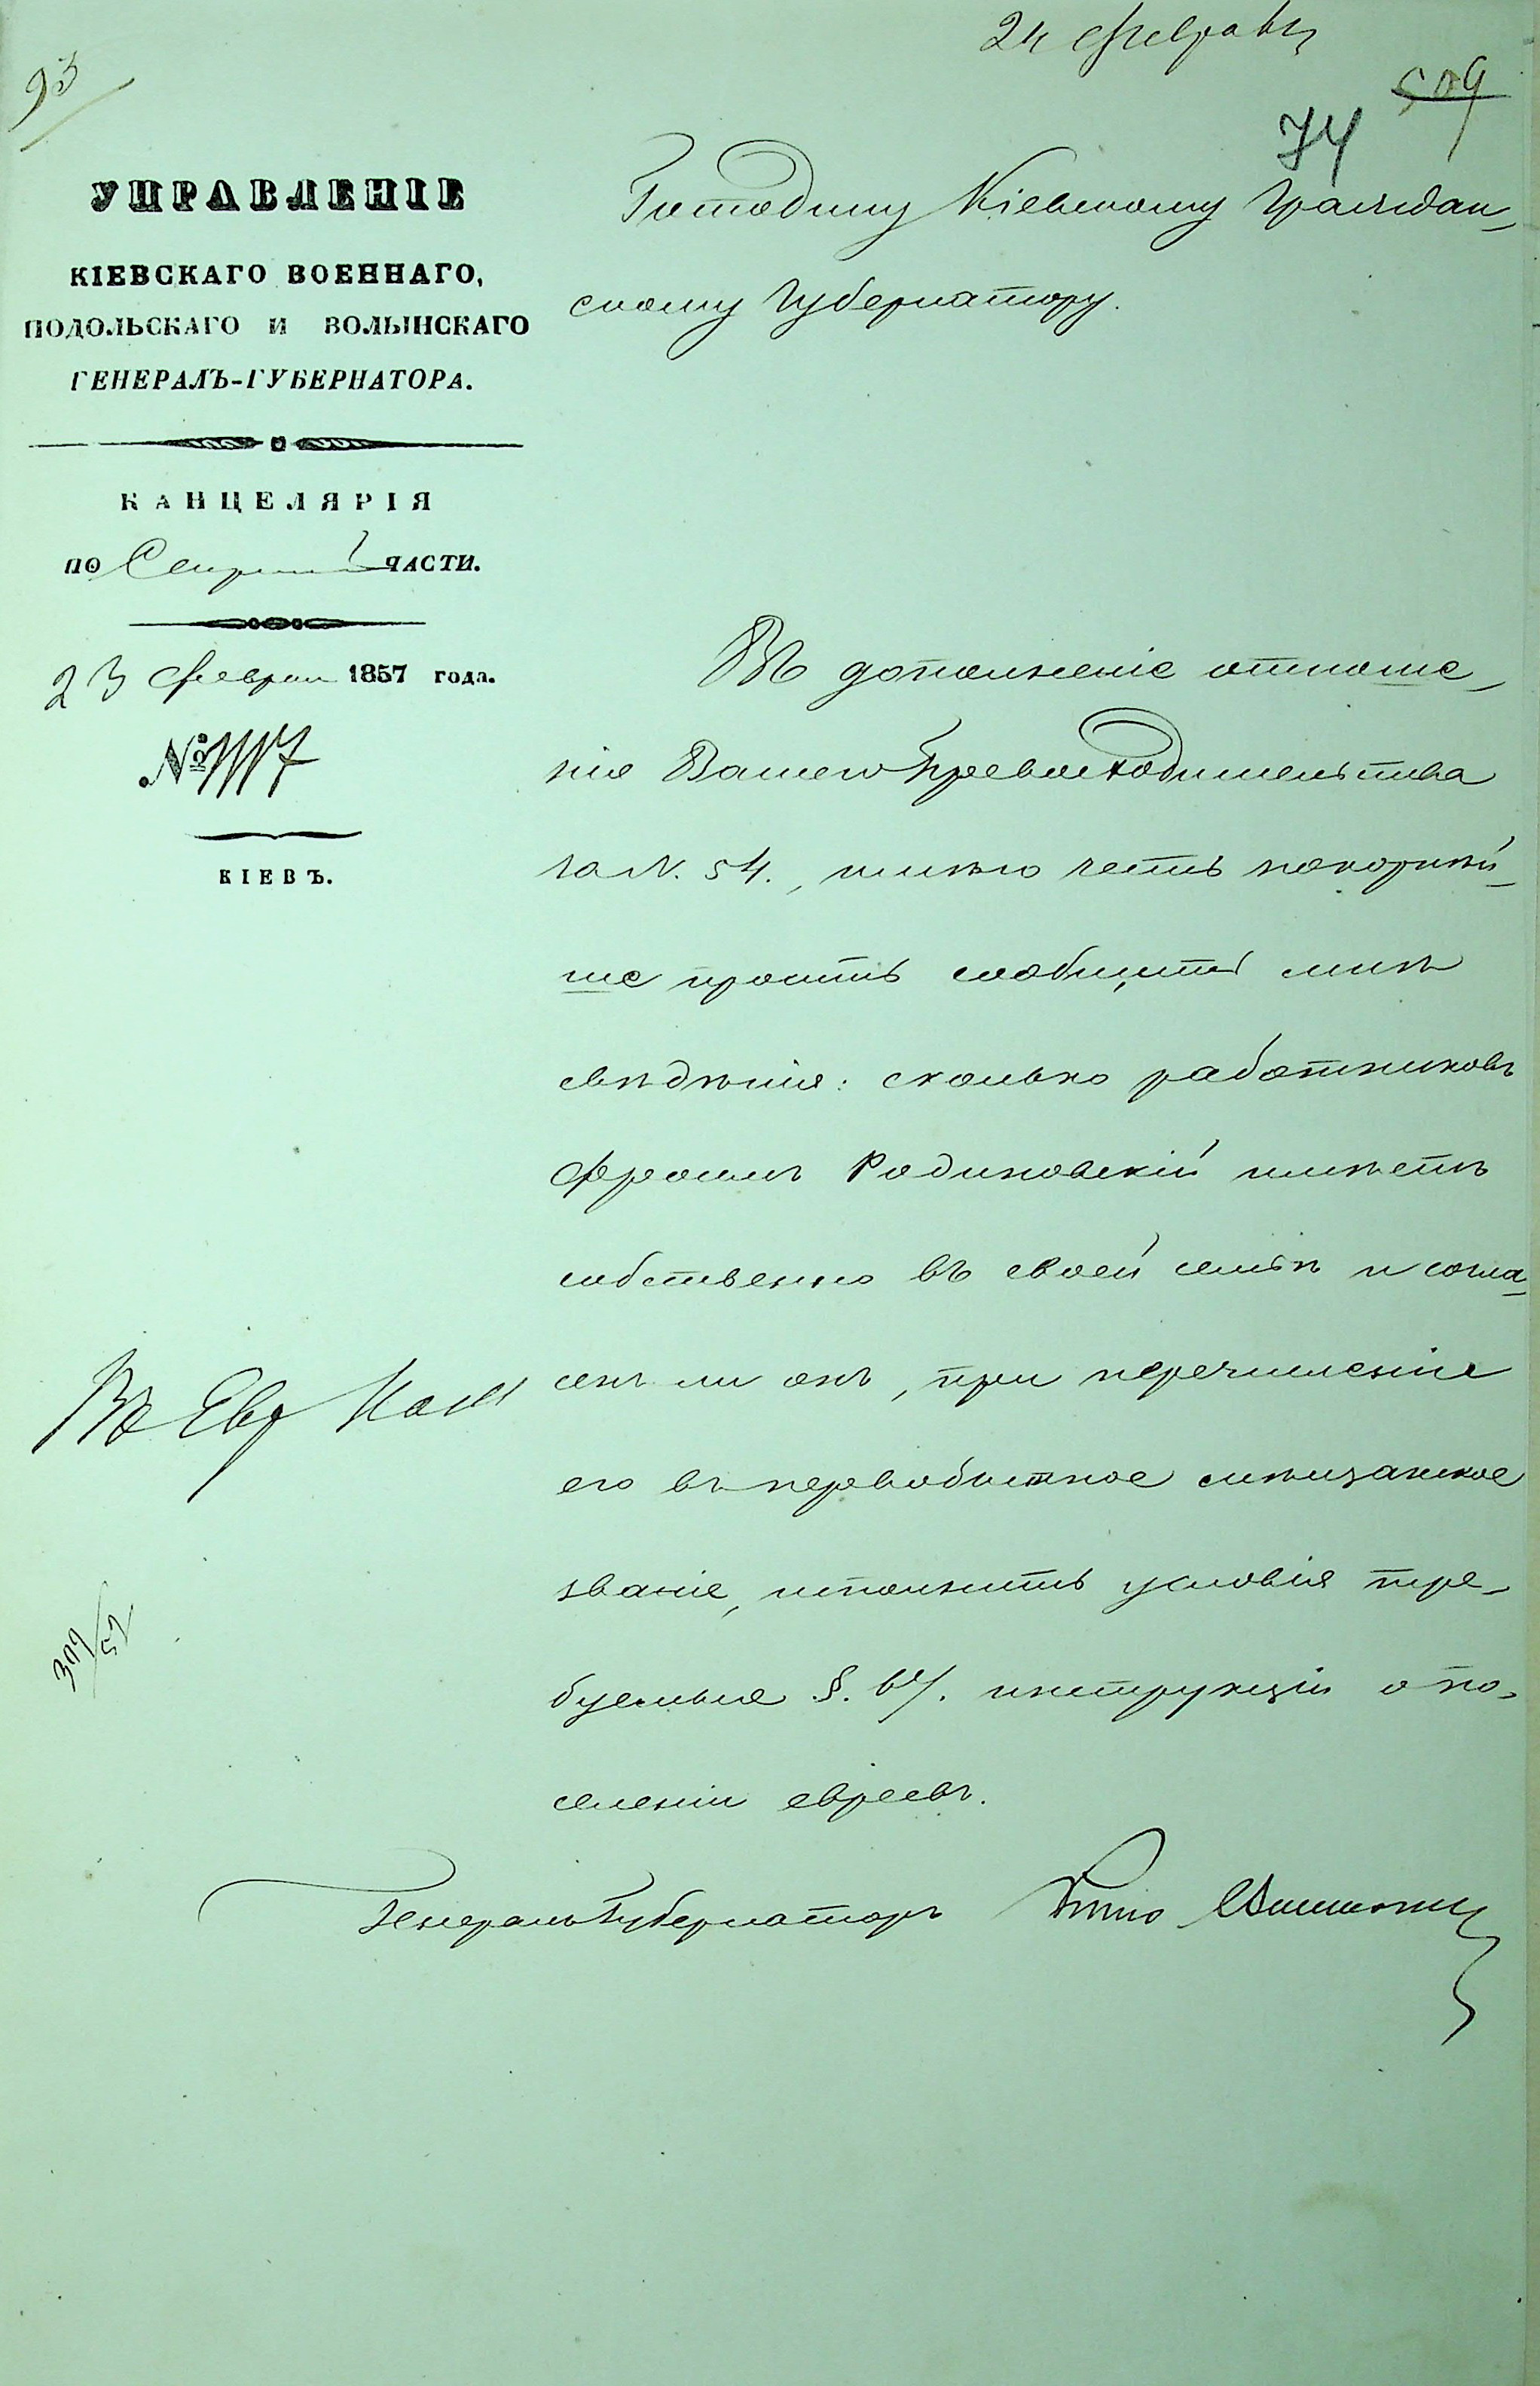 24 февраля
93
509
74
УПРАВЛЕНІЕ
КІЕВСКАГО ВОЕННАГО,
ПОДОЛЬСКАГО И ВОЛЫНСКАГО
ГЕНЕРАЛЪ-ГУБЕРНАТОРА.
КАНЦЕЛЯРІЯ
ПО Секретной ЧАСТИ.
23 февраля 1857 года.
№ 1117
КІЕВЪ.
Господину Кіевскому Граждан-
скому Губернатору.
Въ дополненіе отноше-
нія Вашего Превосходительства
за N. 54., имѣю честь покорнѣй-
ше просить сообщить мнѣ
свѣдѣнія: сколько работниковъ
Фроимъ Родиновскій имѣетъ
собственно въ своей семьѣ и согла-
сенъ ли онъ, при перечисленіи
его въ первобытное мѣщанское
званіе, исполнить условія тре-
буемыя §. 64. инструкціи о по-
селеніи евреевъ.
Въ Евр
Генералъ Губернаторъ